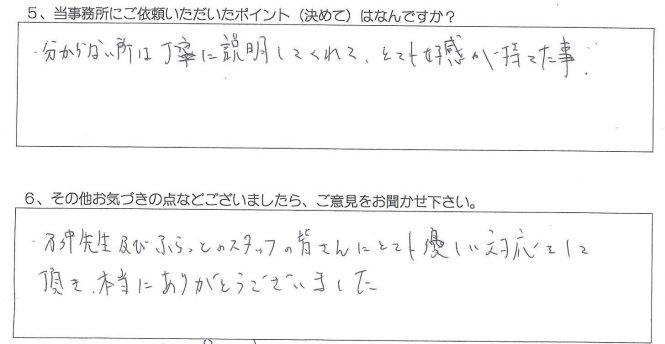 5、当事務所にご依頼いただいたポイント（決めて）はなんですか？
・分からない所は丁寧に説明してくれて、とても好感が持てた事．
6、その他お気づきの点などございましたら、ご意見をお聞かせ下さい。
先生及びふらっとのスタッフの皆さんにとても優しい対応をして
頂き、本当にありがとうございました